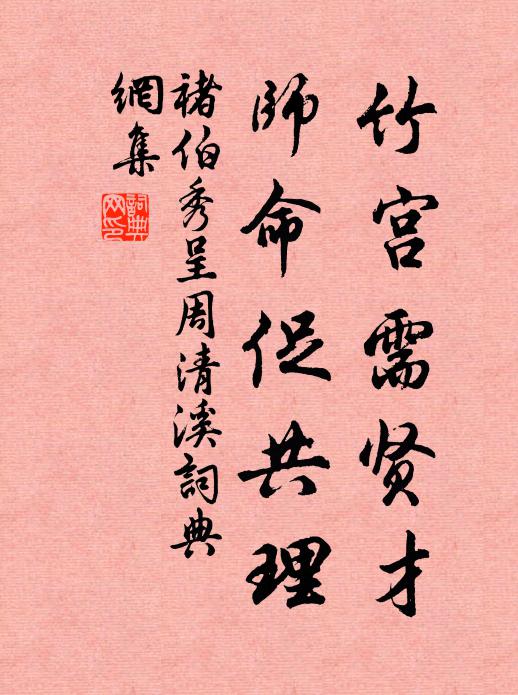 竹宫需贤才
師命促共理
褚伯秀呈周清溪詞典
網集
詞典網印